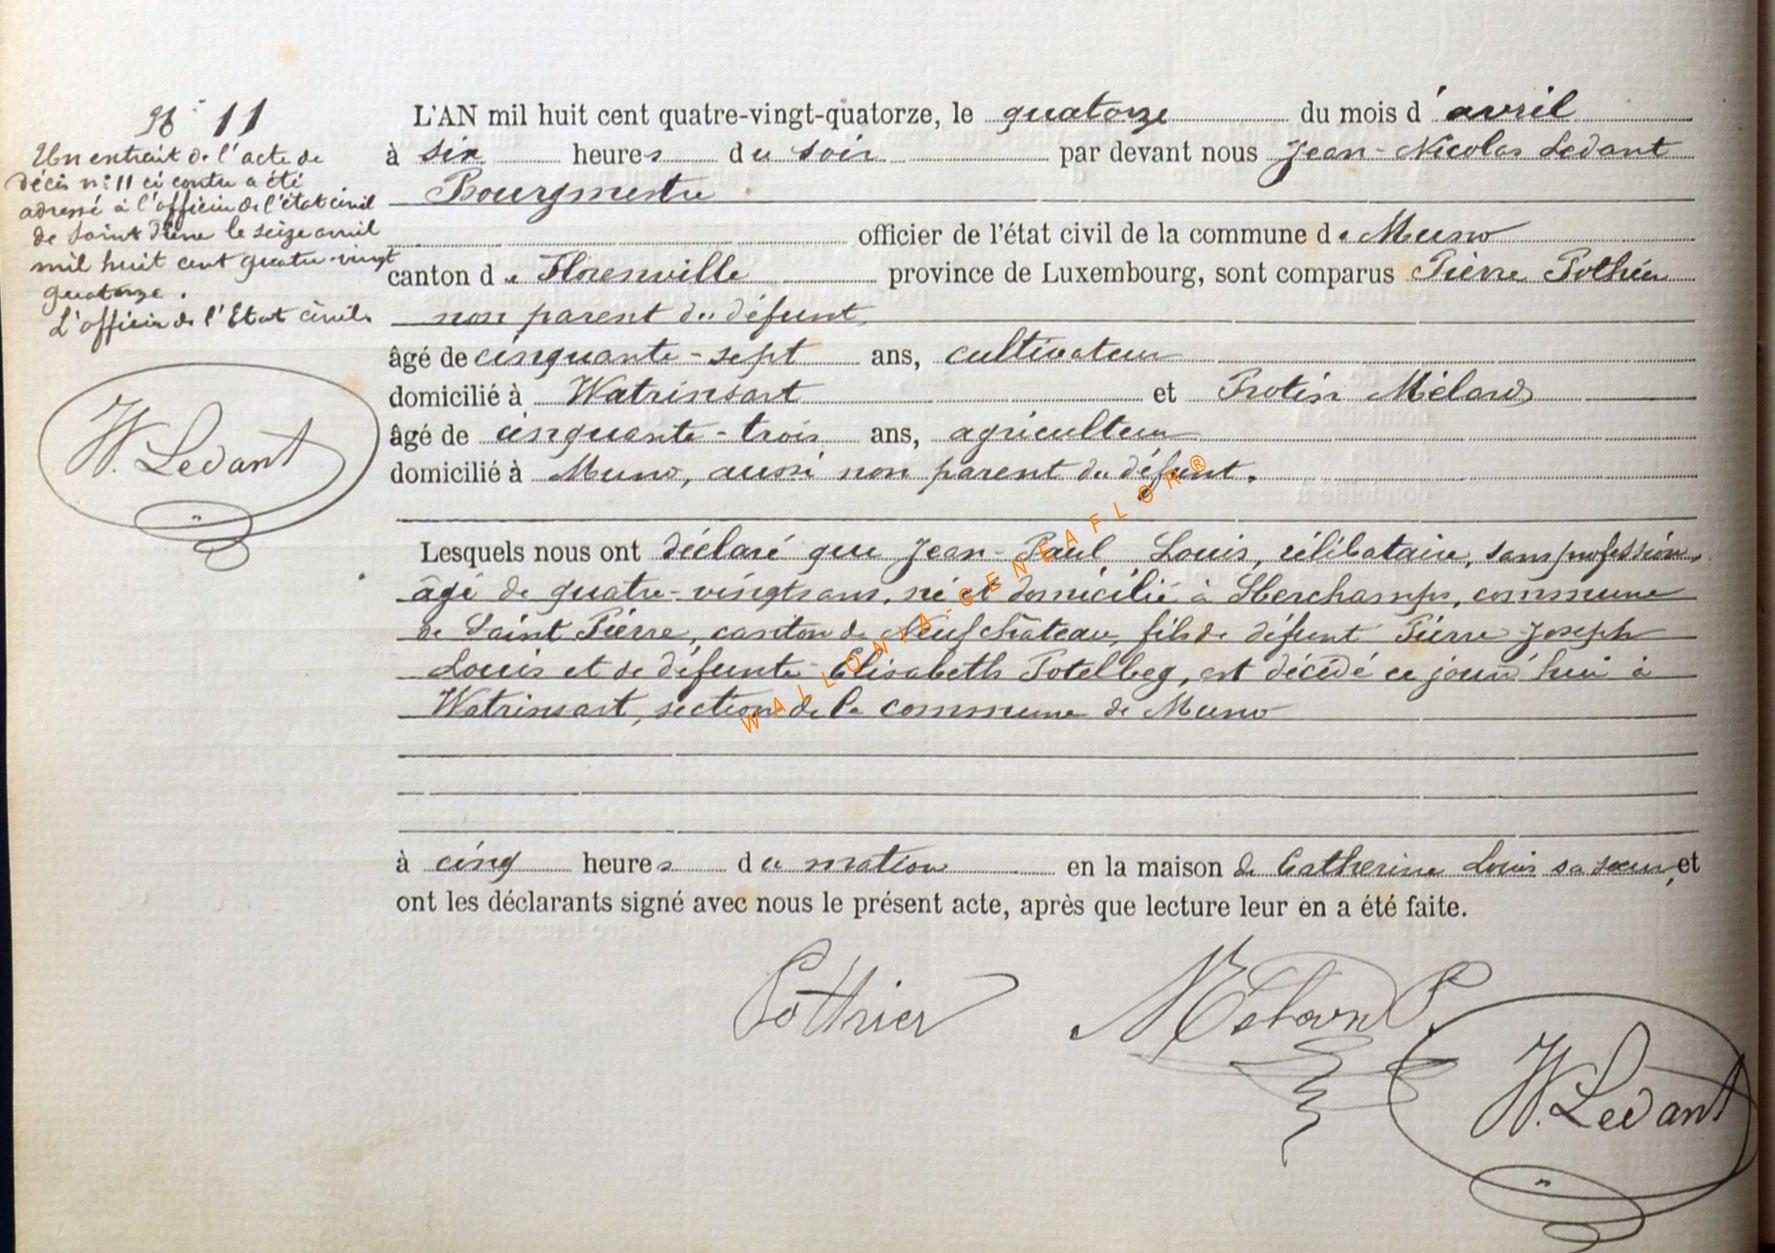 N° 11
Un extrait de l'acte de
décès n° 11 ci contre a été
adressé à l'officier de l'état civil
de Saint Pierre le seize avril
mil huit cent quatre-vingt
quatorze.
L'officier de l'Etat civil.
W. Ledant
L'AN mil huit cent quatre-vingt-quatorze, le quatorze du mois d'avril
à six heures du soir par devant nous Jean-Nicolas Ledant
Bourgmestre
officier de l'état civil de la commune de Muno
canton de Florenville province de Luxembourg, sont comparus Pierre Pothier
non parent du défunt
âgé de cinquante-sept ans, cultivateur
domicilié à Watrinsart et Protin Mélard
âgé de cinquante-trois ans, agriculteur
domicilié à Muno, aussi non parent du défunt.
Lesquels nous ont déclaré que Jean-Paul Louis, célibataire, sans profession,
âgé de quatre-vingts ans, né et domicilié à Sberchamps, commune
de Saint Pierre, canton de Neufchâteau, fils de défunt Pierre Joseph
Louis et de défunte Elisabeth Potelbeg, est décédé ce jourd'hui à
Watrinsart, section de la commune de Muno
à cinq heures du matin en la maison de Catherine Louis sa soeur, et
ont les déclarants signé avec nous le présent acte, après que lecture leur en a été faite.
Pothier Melard P.
W. Ledant
WALLONIA-GENEAFLOR®